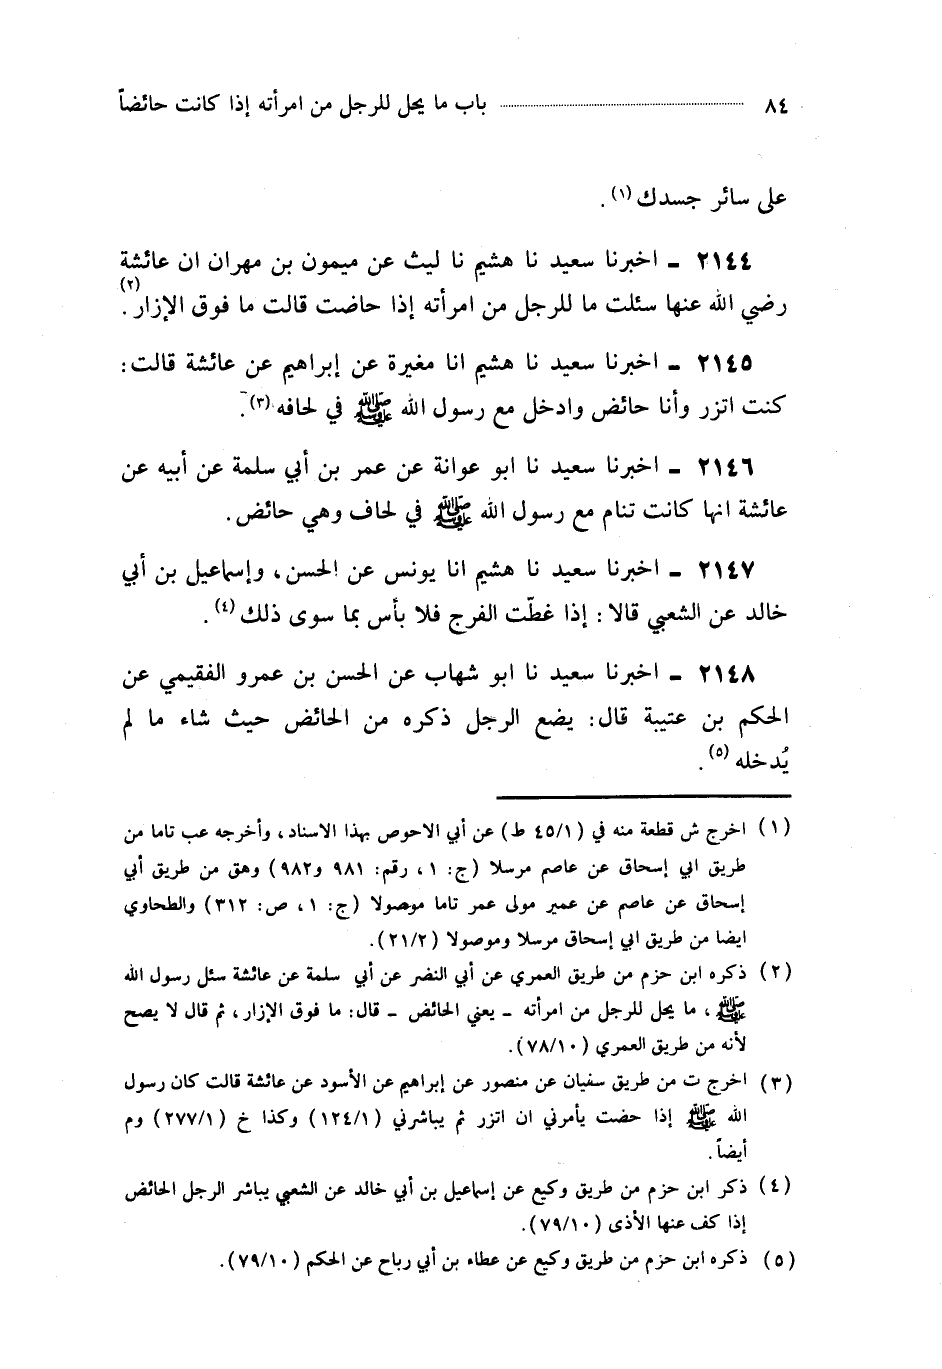 ٨٤ ........ باب ما يحل للرجل من امرأته إذا كانت حائضاً
على سائر جسدك (١) .
٢١٤٤ ـ اخبرنا سعيد نا هشيم نا ليث عن ميمون بن مهران ان عائشة
رضي الله عنها سئلت ما للرجل من امرأته إذا حاضت قالت ما فوق الإزار (٢) .
٢١٤٥ ـ اخبرنا سعيد نا هشيم انا مغيرة عن إبراهيم عن عائشة قالت :
كنت اتزر وأنا حائض وادخل مع رسول الله ﷺ في لحافه (٣) .
٢١٤٦ ـ اخبرنا سعيد نا ابو عوانة عن عمر بن أبي سلمة عن أبيه عن
عائشة انها كانت تنام مع رسول الله ﷺ في لحاف وهي حائض .
٢١٤٧ ـ اخبرنا سعيد نا هشيم انا يونس عن الحسن ، وإسماعيل بن أبي
خالد عن الشعبي قالا : إذا غطّت الفرج فلا بأس بما سوى ذلك (٤) .
٢١٤٨ ـ اخبرنا سعيد نا ابو شهاب عن الحسن بن عمرو الفقيمي عن
الحكم بن عتيبة قال : يضع الرجل ذكره من الحائض حيث شاء ما لم
يُدخله (٥) .
(١) اخرج ش قطعة منه في (٤٥/١ ط) عن أبي الاحوص بهذا الاسناد ، وأخرجه عب تاما من
طريق ابي إسحاق عن عاصم مرسلا (ج : ١ ، رقم : ٩٨١ و٩٨٢) وهق من طريق أبي
إسحاق عن عاصم عن عمير مولى عمر تاما موصولا (ج : ١ ، ص : ٣١٢) والطحاوي
ايضا من طريق ابي إسحاق مرسلا وموصولا (٢١/٢) .
(٢) ذكره ابن حزم من طريق العمري عن أبي النضر عن أبي سلمة عن عائشة سئل رسول الله
ﷺ ، ما يحل للرجل من امرأته ـ يعني الحائض ـ قال : ما فوق الإزار ، ثم قال لا يصح
لأنه من طريق العمري (٧٨/١٠) .
(٣) اخرج ت من طريق سفيان عن منصور عن إبراهيم عن الأسود عن عائشة قالت كان رسول
الله ﷺ إذا حضت يأمرني ان اتزر ثم يباشرني (١٢٤/١) وكذا خ (٢٧٧/١) وم
أيضاً .
(٤) ذكر ابن حزم من طريق وكيع عن إسماعيل بن أبي خالد عن الشعبي يباشر الرجل الحائض
إذا كف عنها الأذى (٧٩/١٠) .
(٥) ذكره ابن حزم من طريق وكيع عن عطاء بن أبي رباح عن الحكم (٧٩/١٠) .